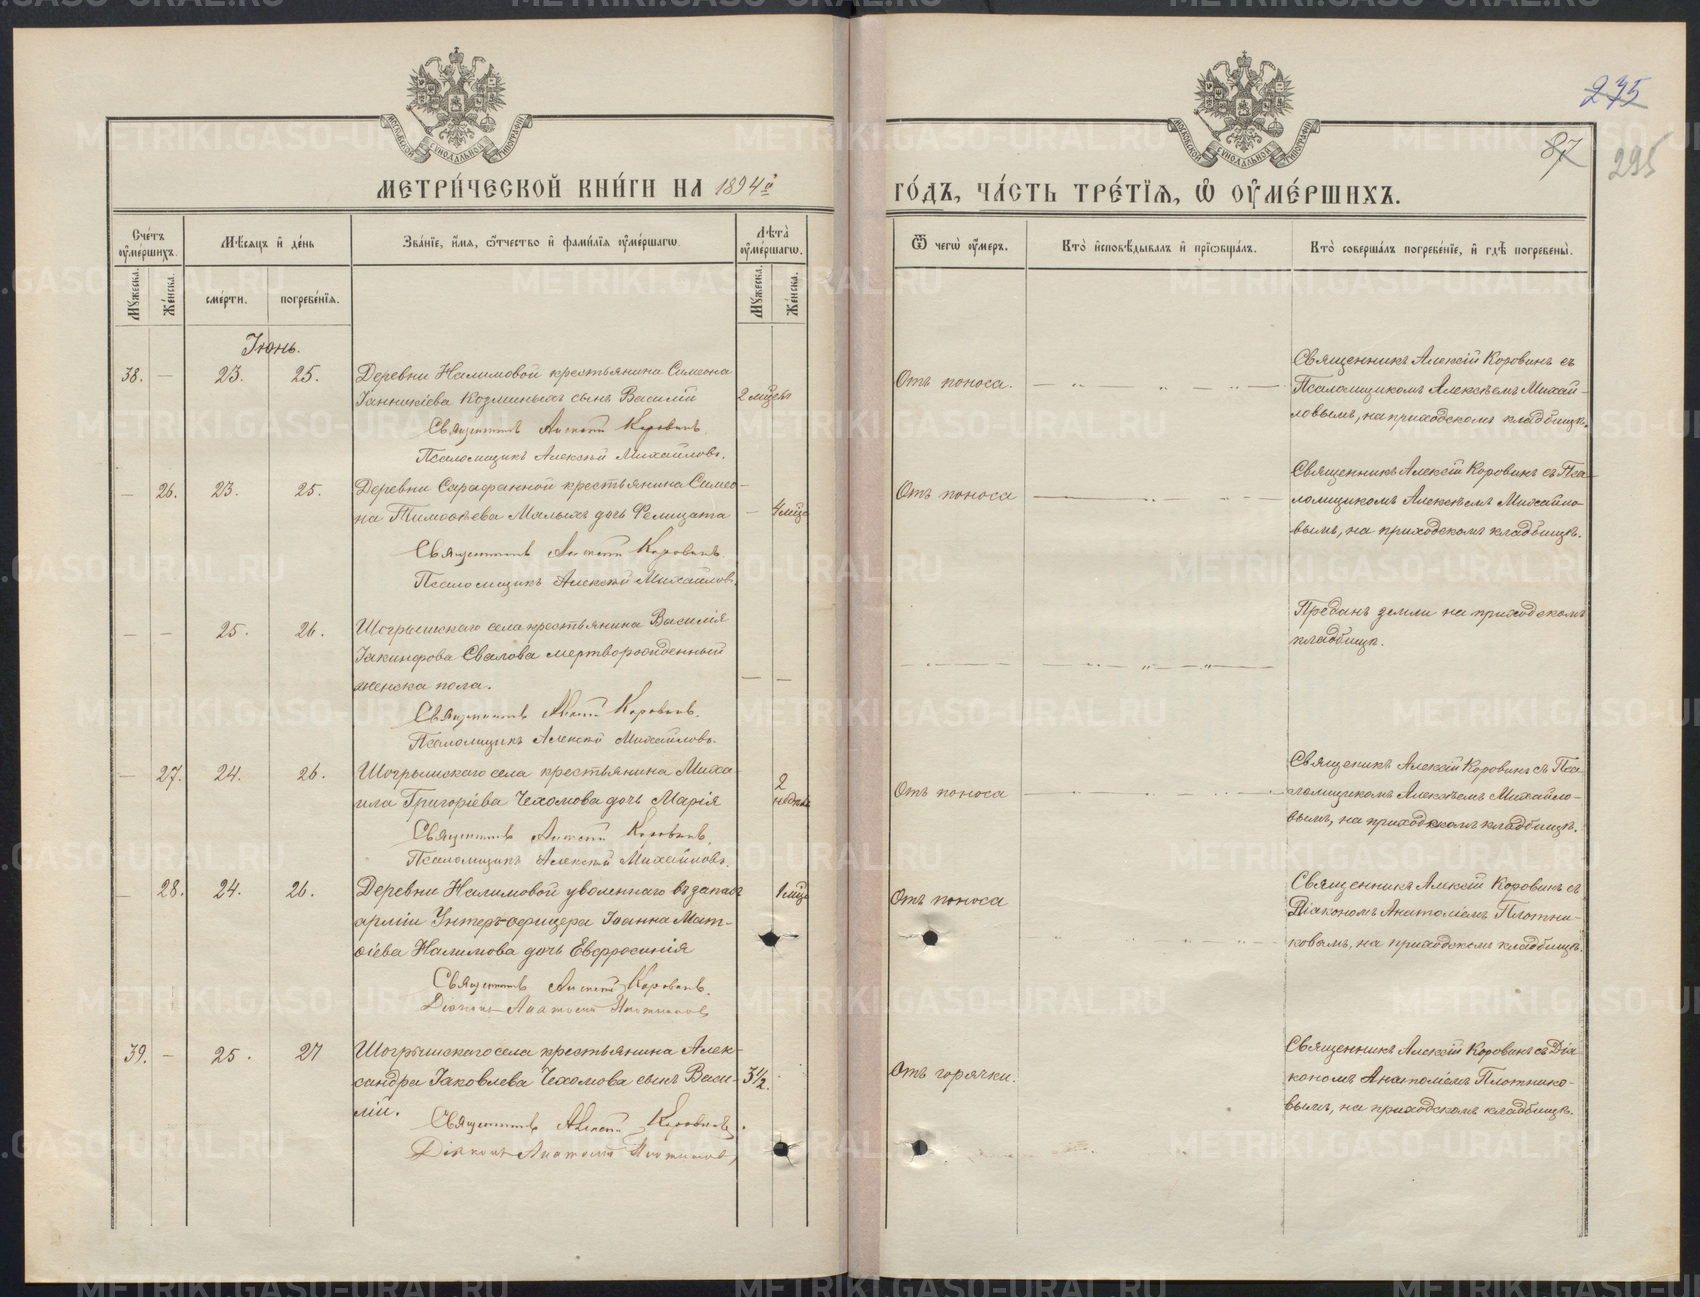 МОСКОВСКОЙ СѴНОДАЛЬНОЙ ТИПОГРАФІИ
МОСКОВСКОЙ СѴНОДАЛЬНОЙ ТИПОГРАФІИ
235
87
295
МЕТРИ́ЧЕСКОЙ КНИ́ГИ НА 1894й
ГО́ДЪ, ЧА́СТЬ ТРЕ́ТІЯ, Ѡ ОУМЕ́РШИХЪ.
Сче́тъ оуме́ршихъ.
Мѣ́сяцъ и де́нь
Зва́нїе, и́мя, ѻ҆́тчество и фами́лїя оуме́ршагѡ.
Лѣта̀ оуме́ршагѡ.
Ѿ чегѡ̀ оу́меръ.
Кто̀ исповѣ́дывалъ и прїѡбща́лъ.
Кто̀ соверша́лъ погребе́нїе, и гдѣ̀ погребены̀.
Мꙋ́жеска.
Же́нска.
сме́рти.
погребе́нїя.
Мꙋ́жеска.
Же́нска.
Іюнь.
38. — 23. 25. Деревни Налимовой крестьянина Симеона
Іанникіева Козминыхъ сынъ Василій
2 мцевъ
Священникъ Алексій Коровинъ.
Псаломщикъ Алексѣй Михайловъ.
Отъ поноса.
Священникъ Алексій Коровинъ съ
Псаломщикомъ Алексѣемъ Михай-
ловымъ, на приходскомъ кладбищѣ.
— 26. 23. 25. Деревни Сарафанной крестьянина Симео-
на Тимоѳеева Малыхъ дочь Фелицата
— 4 мцо
Священникъ Алексій Коровинъ.
Псаломщикъ Алексѣй Михайловъ.
Отъ поноса
Священникъ Алексій Коровинъ съ Пса-
ломщикомъ Алексѣемъ Михайло-
вымъ, на приходскомъ кладбищѣ.
— — 25. 26. Шогрышскаго села крестьянина Василія
Іакинфова Свалова мертворожденный
женска пола.
— —
Священникъ Алексій Коровинъ.
Псаломщикъ Алексѣй Михайловъ.
Преданъ земли на приходскомъ
кладбищѣ.
— 27. 24. 26. Шогрышскаго села крестьянина Миха-
ила Григоріева Чехомова дочь Марія
2
недѣли
Священникъ Алексій Коровинъ.
Псаломщикъ Алексѣй Михайловъ.
Отъ поноса
Священикъ Алексій Коровинъ съ Пса-
ломщикомъ Алексѣемъ Михайло-
вымъ, на приходскомъ кладбищѣ.
— 28. 24. 26. Деревни Налимовой уволеннаго въ запасъ
арміи Унтеръ-офицера Іоанна Мат-
ѳіева Налимова дочь Евфросинія
1 мцо
Священникъ Алексій Коровинъ.
Діаконъ Анатолій Плотниковъ
Отъ поноса
Священникъ Алексій Коровинъ съ
Діакономъ Анатоліемъ Плотни-
ковымъ, на приходскомъ кладбищѣ.
39. — 25. 27 Шогрышскаго села крестьянина Алек-
сандра Іаковлева Чехомова сынъ Васи-
лій.
3 1/2.
Священникъ Алексій Коровинъ.
Діаконъ Анатолій Плотниковъ
Отъ горячки.
Священникъ Алексій Коровинъ съ Діа-
кономъ Анатоліемъ Плотнико-
вымъ, на приходскомъ кладбищѣ.
METRIKI.GASO-URAL.RU